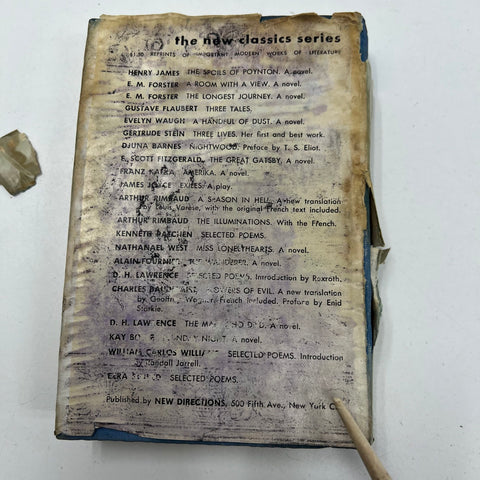 the new classics series
$1.50 REPRINTS OF IMPORTANT MODERN WORKS OF LITERATURE
HENRY JAMES THE SPOILS OF POYNTON. A novel.
E. M. FORSTER A ROOM WITH A VIEW. A novel.
E. M. FORSTER THE LONGEST JOURNEY. A novel.
GUSTAVE FLAUBERT THREE TALES.
EVELYN WAUGH A HANDFUL OF DUST. A novel.
GERTRUDE STEIN THREE LIVES. Her first and best work.
DJUNA BARNES NIGHTWOOD. Preface by T. S. Eliot.
F. SCOTT FITZGERALD. THE GREAT GATSBY. A novel.
FRANZ KAFKA AMERIKA. A novel.
JAMES JOYCE EXILES. A play.
ARTHUR RIMBAUD A SEASON IN HELL. A new translation
by Louis Varèse, with the original French text included.
ARTHUR RIMBAUD THE ILLUMINATIONS. With the French.
KENNETH PATCHEN SELECTED POEMS.
NATHANAEL WEST MISS LONELYHEARTS. A novel.
ALAIN FOURNIER THE WANDERER. A novel.
D. H. LAWRENCE SELECTED POEMS. Introduction by Rexroth.
CHARLES BAUDELAIRE FLOWERS OF EVIL. A new translation
by Geoffrey Wagner. French included. Preface by Enid
Starkie.
D. H. LAWRENCE THE MAN WHO DIED. A novel.
KAY MONDAY NIGHT. A novel.
WILLIAM CARLOS WILLIAMS SELECTED POEMS. Introduction
by Randall Jarrell.
EZRA POUND SELECTED POEMS.
Published by NEW DIRECTIONS, 500 Fifth Ave., New York